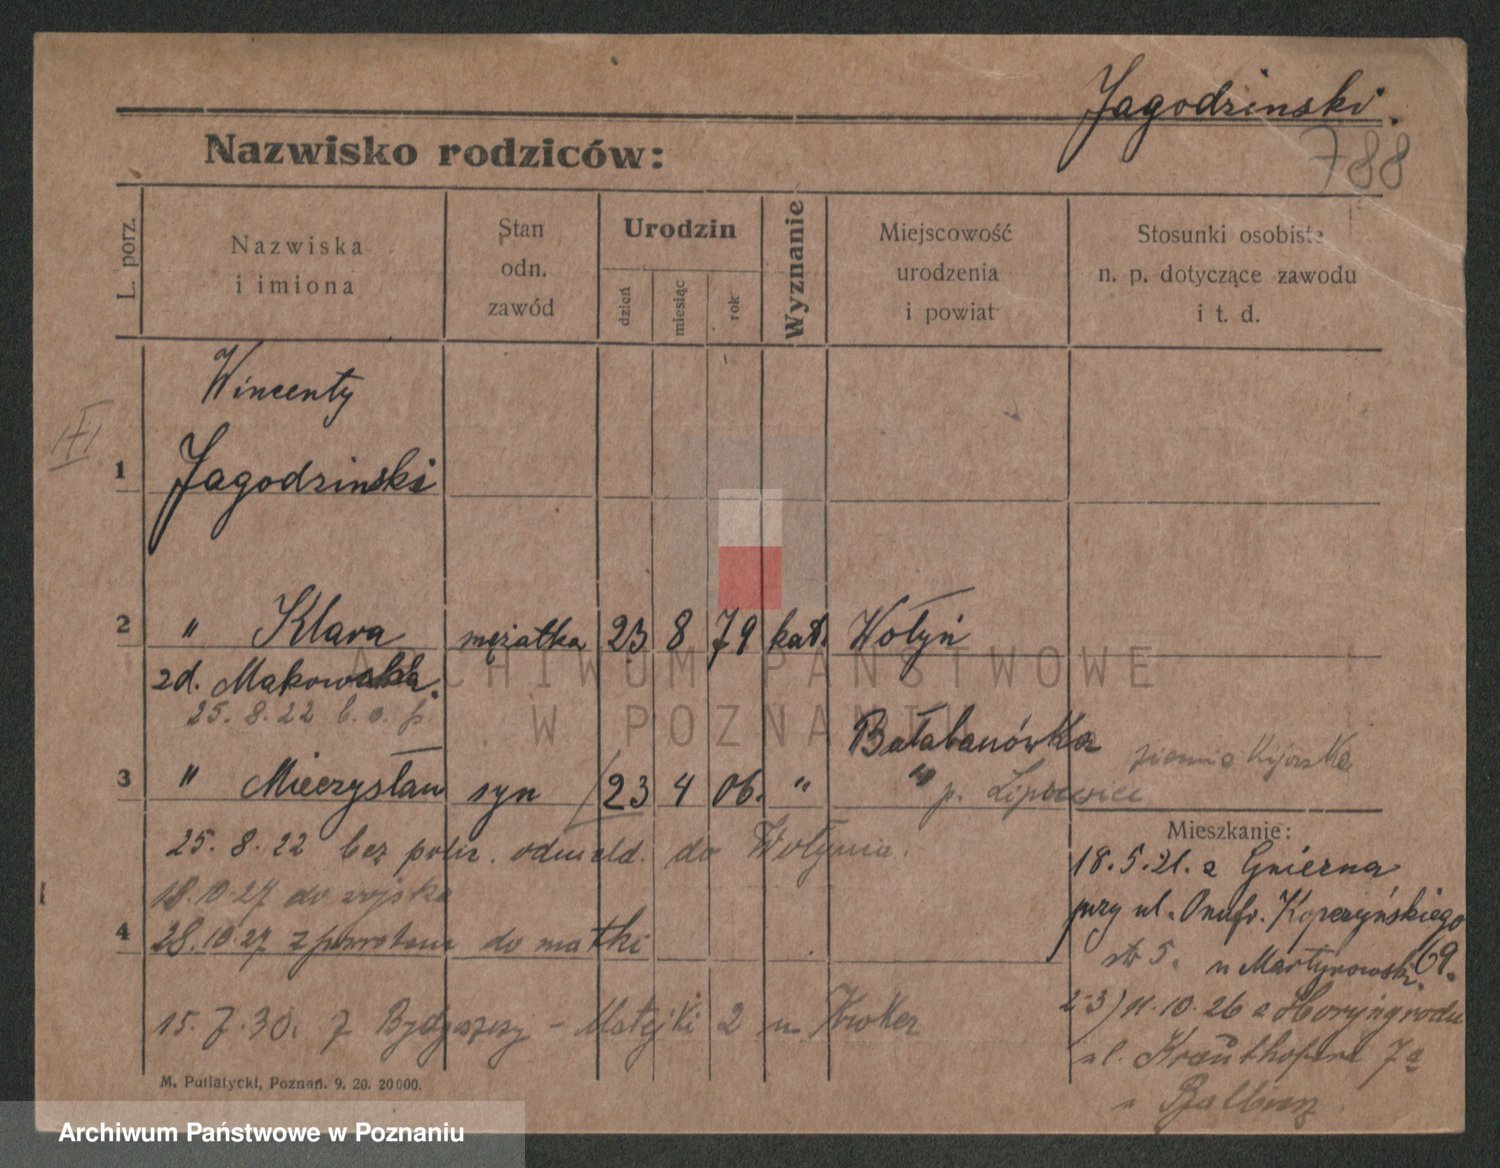 Jagodzinski.
788
Nazwisko rodziców:
L. porz.
Nazwiska
i imiona
Stan
odn.
zawód
Urodzin
dzień
miesiąc
rok
Wyznanie
Miejscowość
urodzenia
i powiat
Stosunki osobiste
n. p. dotyczące zawodu
i t. d.
Wincenty
1 Jagodzinski
2 " Klara mężatka 23 8 79 kat. Wołyń
zd. Makowska.
25. 8. 22 b. o. p.
Bałabanówka ziemia Kijowska
3 " Mieczysław syn 23 4 06. " " p. Lipowiec
Mieszkanie:
25. 8. 22 bez polic. odmeld. do Wołynia.
18. 5. 21. z Gniezna
18.10.27 do wojska
przy ul. Onufr. Kopczyńskiego
4 28.10.27 z powrotem do matki
str 5. u Martynowski 69.
15. 7. 30. z Bydgoszczy - Matejki 2 u
2-3) 11.10.26 z
ul. Krauthofera 7a
u
M. Putiatycki, Poznań. 9. 20. 20000.
ARCHIWUM PAŃSTWOWE
W POZNANIU
Archiwum Państwowe w Poznaniu